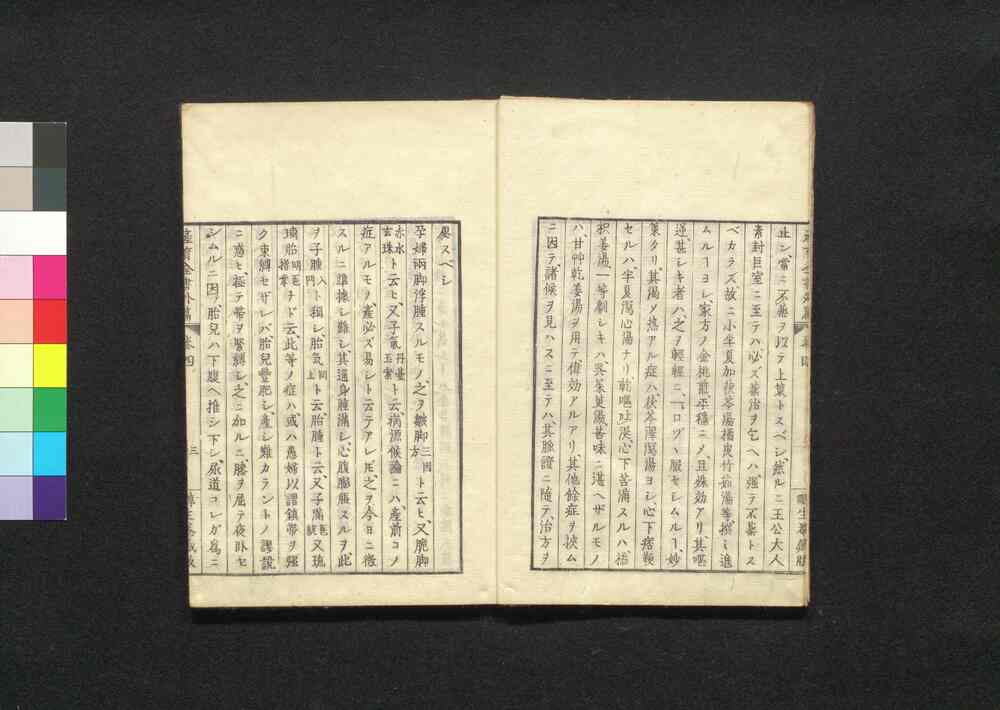 止ン、當ニ不藥ヲ以テ上策トスベシ、然ルニ王公大人
素封巨室ニ至テハ、必ズ藥治ヲ乞ヘハ、強テ不藥トス
ベカラズ、故ニ小半夏加茯苓湯、橘皮竹茹湯等撰ミ進
ムルヿヨシ、家方ノ金桃煎、平穩ニメ、且殊効アリ、其嘔
逆甚シキ者ハ、之ヲ輕輕ニ、一ログヽ服セシムルヿ、妙
策タリ、其渇ノ熱アル症ハ、茯苓澤瀉湯ヨシ、心下痞鞕
セルハ、半夏瀉心湯ナリ、乾嘔吐涎、心下苦滿スルハ、橘
枳姜湯、一等劇シキハ、呉茱萸湯、苦味ニ堪ヘザルモノ
ハ、甘艸乾姜湯ヲ用テ偉効アルアリ、其他餘症ヲ挾ム
ニ因テ、諸候ヲ見ハスニ至テハ、其脈證ニ随テ、治方ヲ
處スベシ
孕婦兩脚浮腫スルモノ、之ヲ皺脚三因方ト云ヒ、又脆脚
赤水玄珠ト云ヒ、又子氣丹臺玉案ト云、病源候論ニハ、産前コノ
症アルモノ、産必ズ易シト云テアレ𪜈、之ヲ今日ニ徴
スルニ、證據シ難シ、其遍身腫滿シ、心腹膨脹スルヲ、此
ヲ子腫入門ト稱シ、胎氣同上ト云、胎腫ト云、又子滿又琉
璃胎明医指掌ナド云、此等ノ症ハ、或ハ愚婦以謂鎮帯ヲ強
ク束縛セザレバ、胎兒豐肥シ、産シ難カラントノ謬説
ニ惑ヒ、極テ帯ヲ緊縛シ、之ニ加ルニ、膝ヲ屈テ夜臥セ
シムルニ因テ、胎兒ハ下腹ヘ推シ下シ、尿道コレガ為ニ
卷四
三